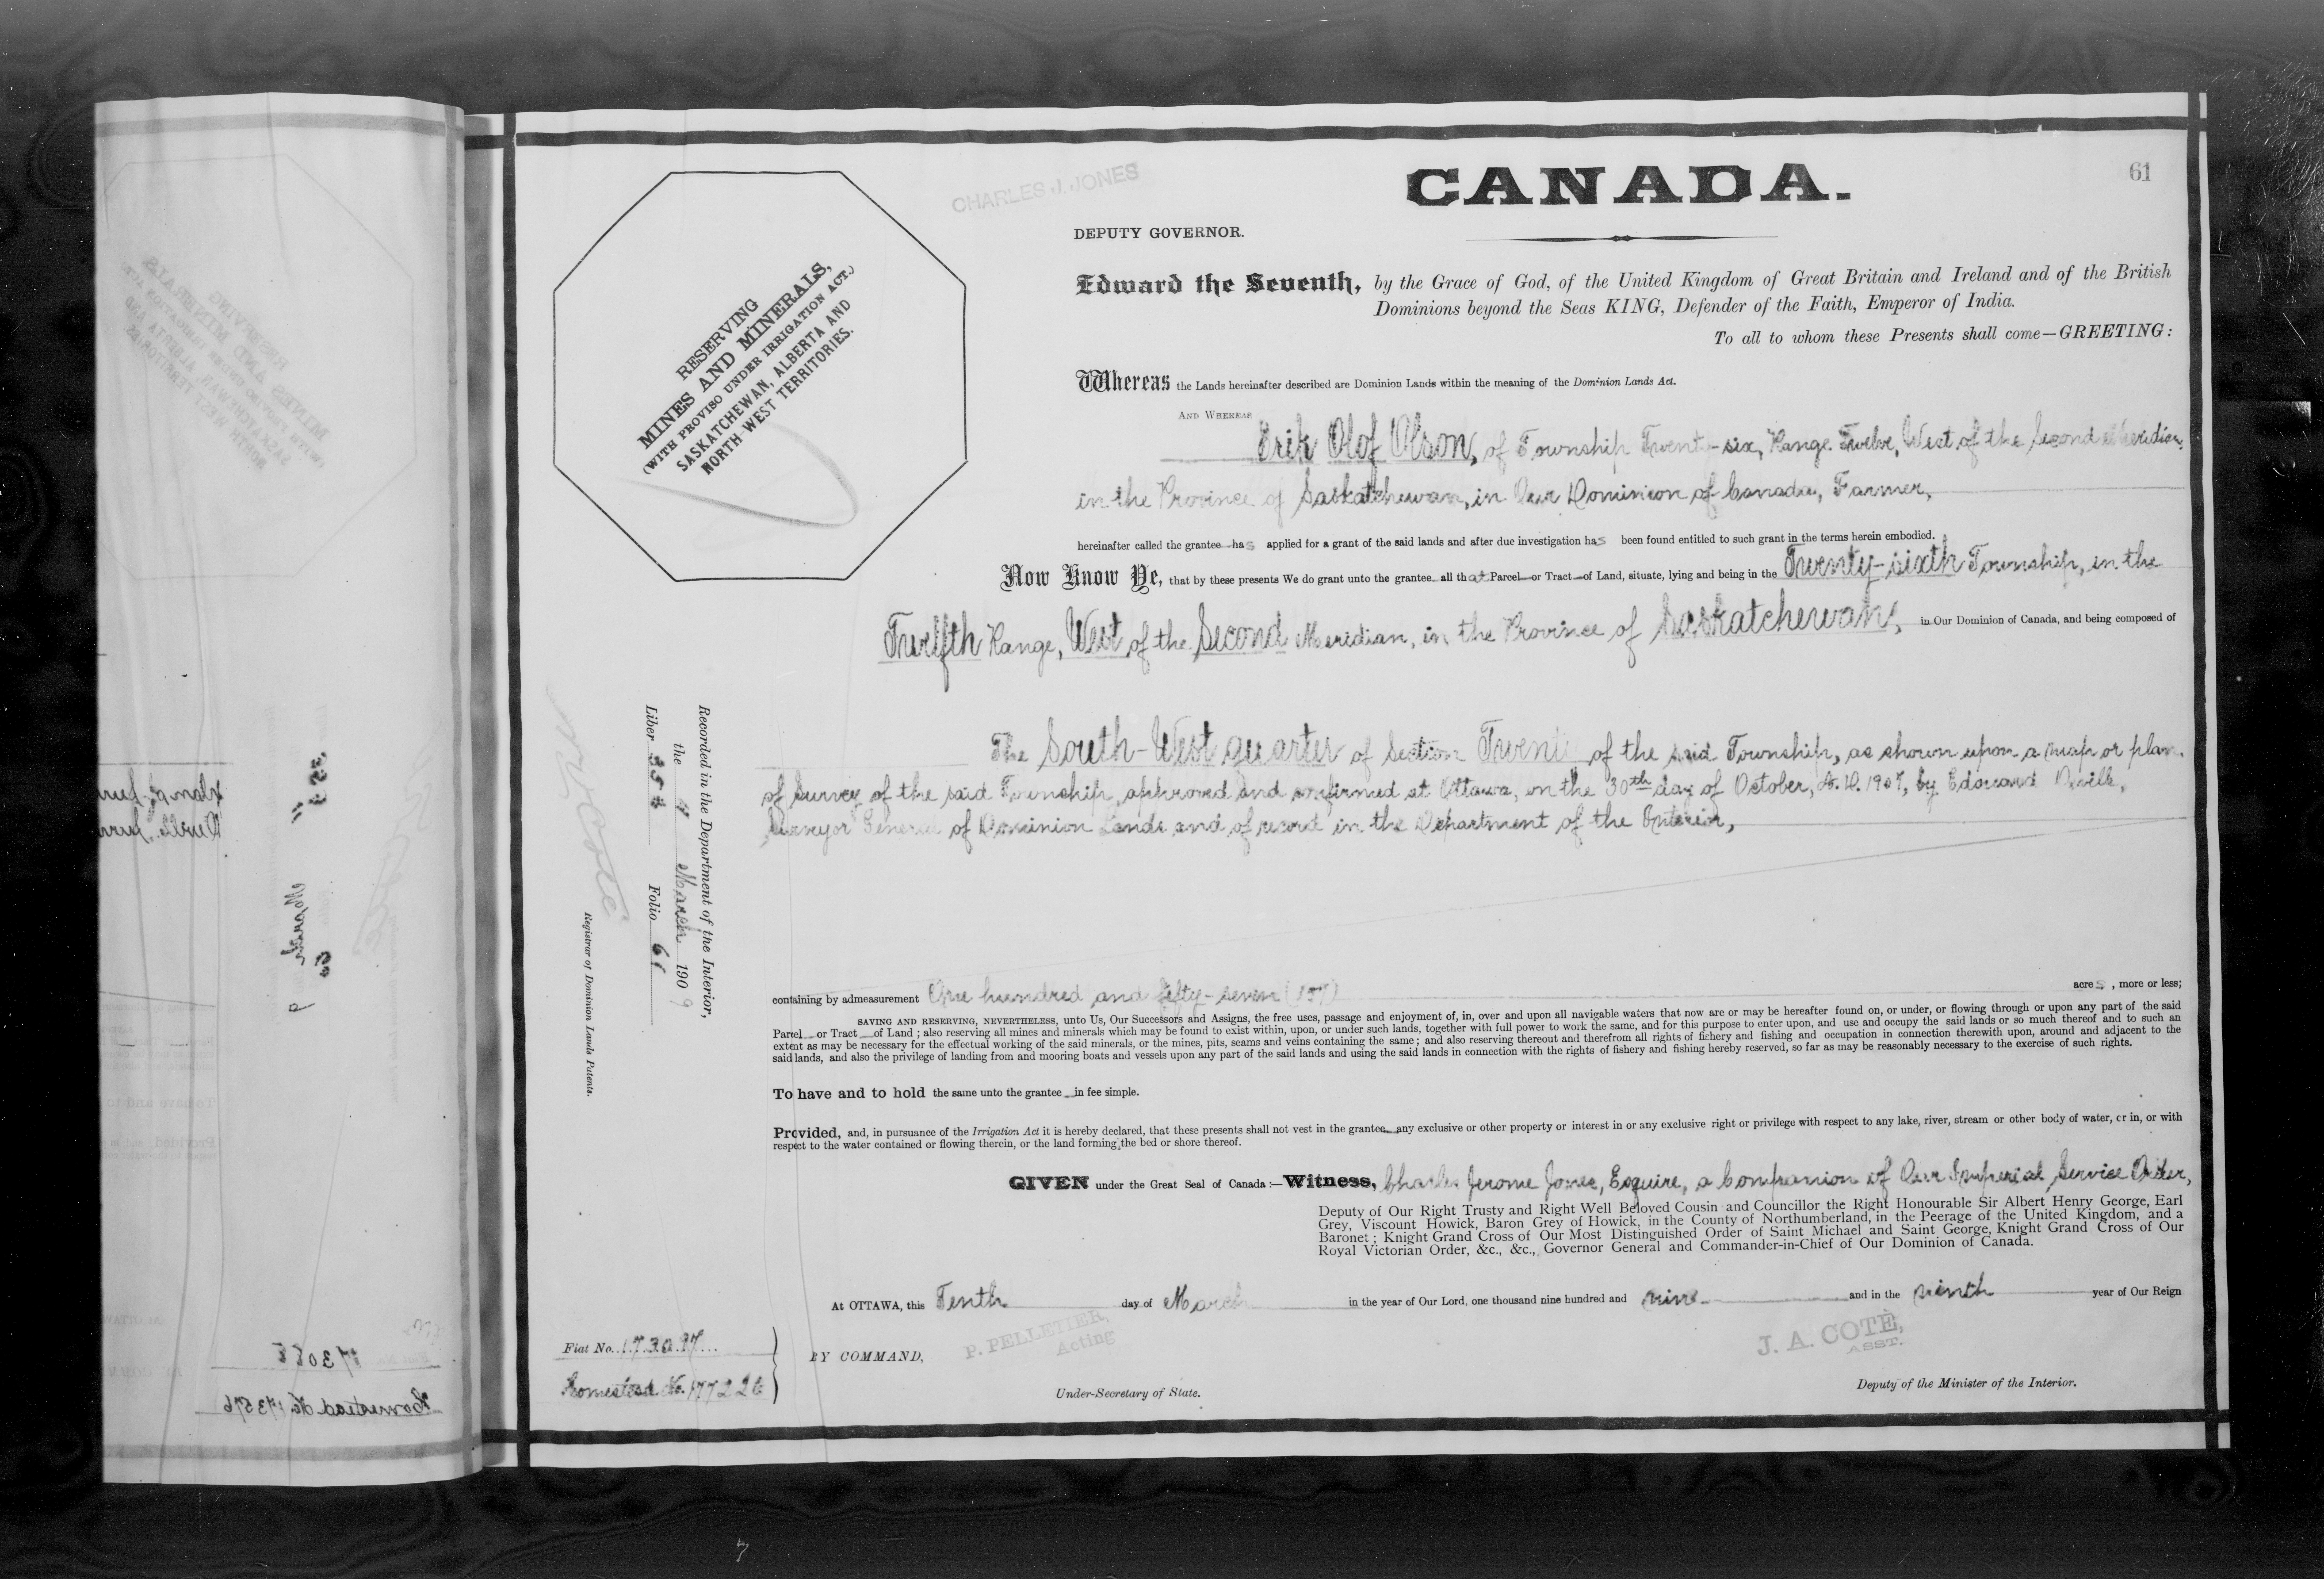 61
CHARLES J. JONES
CANADA.
DEPUTY GOVERNOR.
Edward the Seventh, by the Grace of God, of the United Kingdom of Great Britain and Ireland and of the British
Dominions beyond the Seas KING, Defender of the Faith, Emperor of India.
To all to whom these Presents shall come—GREETING:
RESERVING
MINES AND MINERALS,
(WITH PROVISO UNDER IRRIGATION ACT.)
SASKATCHEWAN, ALBERTA AND
NORTH WEST TERRITORIES.
Whereas the Lands hereinafter described are Dominion Lands within the meaning of the Dominion Lands Act.
AND WHEREAS
Erik Olof Olson, of Township Twenty-six, Range Twelve, West of the Second Meridian
in the Province of Saskatchewan, in Our Dominion of Canada, Farmer,
hereinafter called the grantee has applied for a grant of the said lands and after due investigation has been found entitled to such grant in the terms herein embodied.
Now Know Ye, that by these presents We do grant unto the grantee all that Parcel or Tract of Land, situate, lying and being in the Twenty-sixth Township, in the
Twelfth Range, West of the Second Meridian, in the Province of Saskatchewan, in Our Dominion of Canada, and being composed of
The South-West quarter of Section of the said Township, as shown upon a map or plan
of survey of the said Township, approved and confirmed at Ottawa, on the 30th day of October, A.D. 1907, by Edouard Deville,
Surveyor General of Dominion Lands and of record in the Department of the Interior,
Recorded in the Department of the Interior,
the March 1909
Liber Folio 61
Registrar of Dominion Lands Patents.
containing by admeasurement One hundred and fifty-seven (157) acres, more or less;
SAVING AND RESERVING, NEVERTHELESS, unto Us, Our Successors and Assigns, the free uses, passage and enjoyment of, in, over and upon all navigable waters that now are or may be hereafter found on, or under, or flowing through or upon any part of the said
Parcel or Tract of Land; also reserving all mines and minerals which may be found to exist within, upon, or under such lands, together with full power to work the same, and for this purpose to enter upon, and use and occupy the said lands or so much thereof and to such an
extent as may be necessary for the effectual working of the said minerals, or the mines, pits, seams and veins containing the same; and also reserving thereout and therefrom all rights of fishery and fishing and occupation in connection therewith upon, around and adjacent to the
said lands, and also the privilege of landing from and mooring boats and vessels upon any part of the said lands and using the said lands in connection with the rights of fishery and fishing hereby reserved, so far as may be reasonably necessary to the exercise of such rights.
To have and to hold the same unto the grantee in fee simple.
Provided, and, in pursuance of the Irrigation Act it is hereby declared, that these presents shall not vest in the grantee any exclusive or other property or interest in or any exclusive right or privilege with respect to any lake, river, stream or other body of water, or in, or with
respect to the water contained or flowing therein, or the land forming the bed or shore thereof.
GIVEN under the Great Seal of Canada:—Witness, Charles Jerome Jones, Esquire, a Companion of Our Imperial Service Order,
Deputy of Our Right Trusty and Right Well Beloved Cousin and Councillor the Right Honourable Sir Albert Henry George, Earl
Grey, Viscount Howick, Baron Grey of Howick, in the County of Northumberland, in the Peerage of the United Kingdom, and a
Baronet; Knight Grand Cross of Our Most Distinguished Order of Saint Michael and Saint George, Knight Grand Cross of Our
Royal Victorian Order, &c., &c., Governor General and Commander-in-Chief of Our Dominion of Canada.
At OTTAWA, this Tenth day of March in the year of Our Lord, one thousand nine hundred and nine and in the ninth year of Our Reign
P. PELLETIER,
Acting
J. A. COTÉ,
ASST.
Fiat No. 173097
Homestead No. 177226
BY COMMAND,
Under-Secretary of State.
Deputy of the Minister of the Interior.